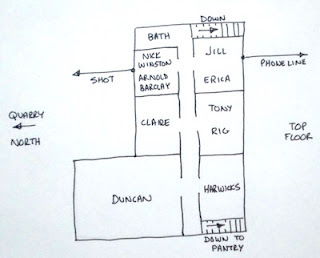 DOWN
BATH
NICK
WINSTON
ARNOLD
BARCLAY
JILL
ERICA
SHOT
PHONE LINE
QUARRY
NORTH
CLAIRE
TONY
RIG
TOP
FLOOR
DUNCAN
HARWICKS
DOWN TO
PANTRY